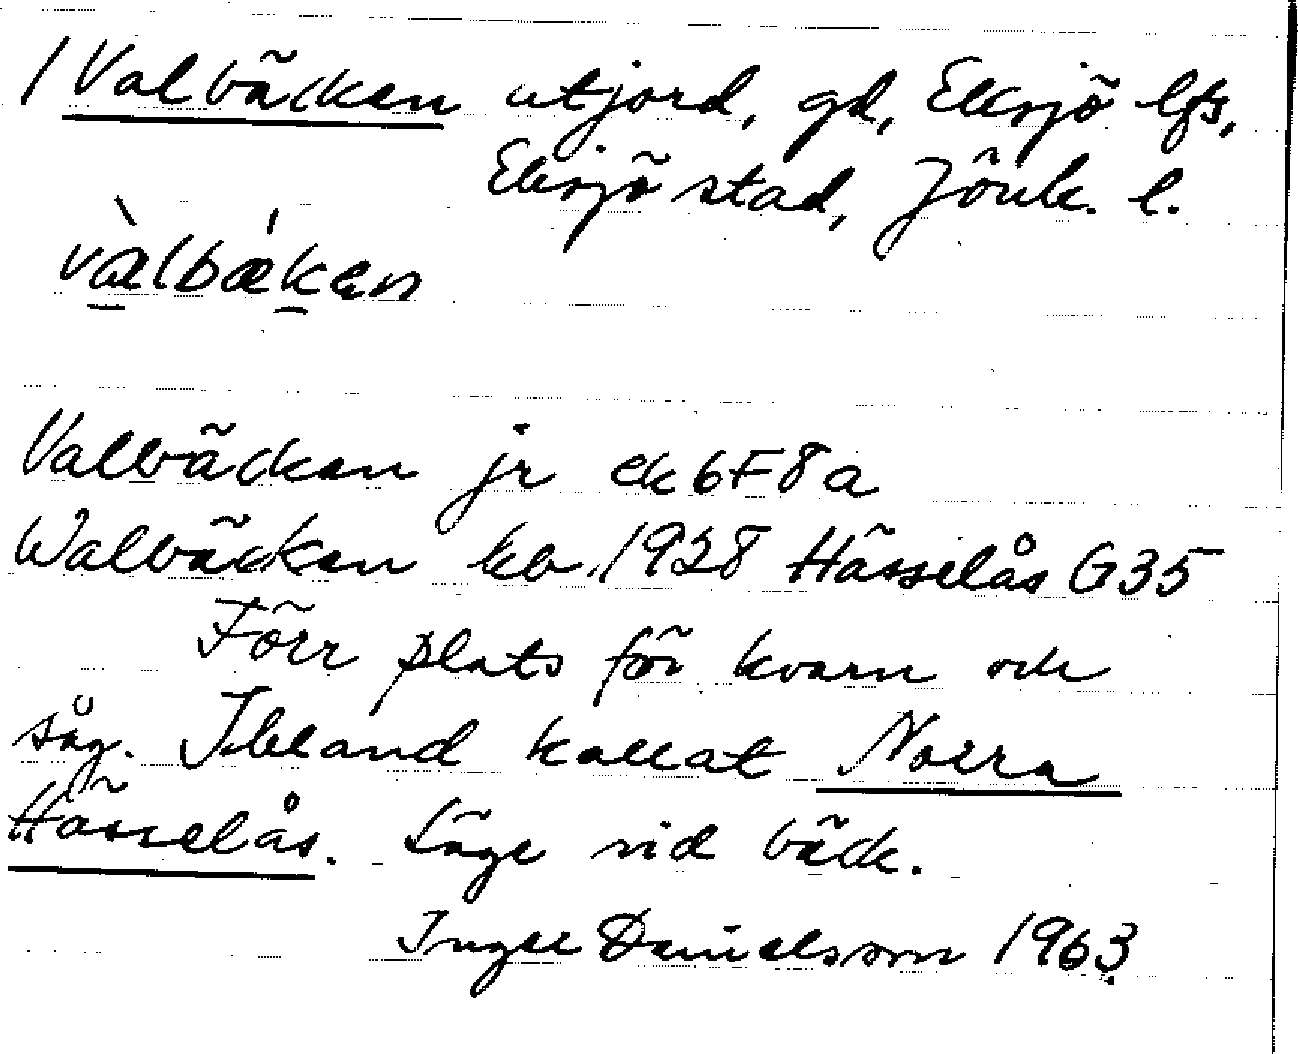 / Valbäcken utjord, gd, Eksjö lfs,
Eksjö stad, Jönk. l.
vàlbækan
Valbäcken jr ek 6F8a
Walbäcken kb 1928 Hässelås G35
Förr plats för kvarn och
såg. Ibland kallat Norra
Hässelås. Läge vid bäck.
Inger Danielsson 1963